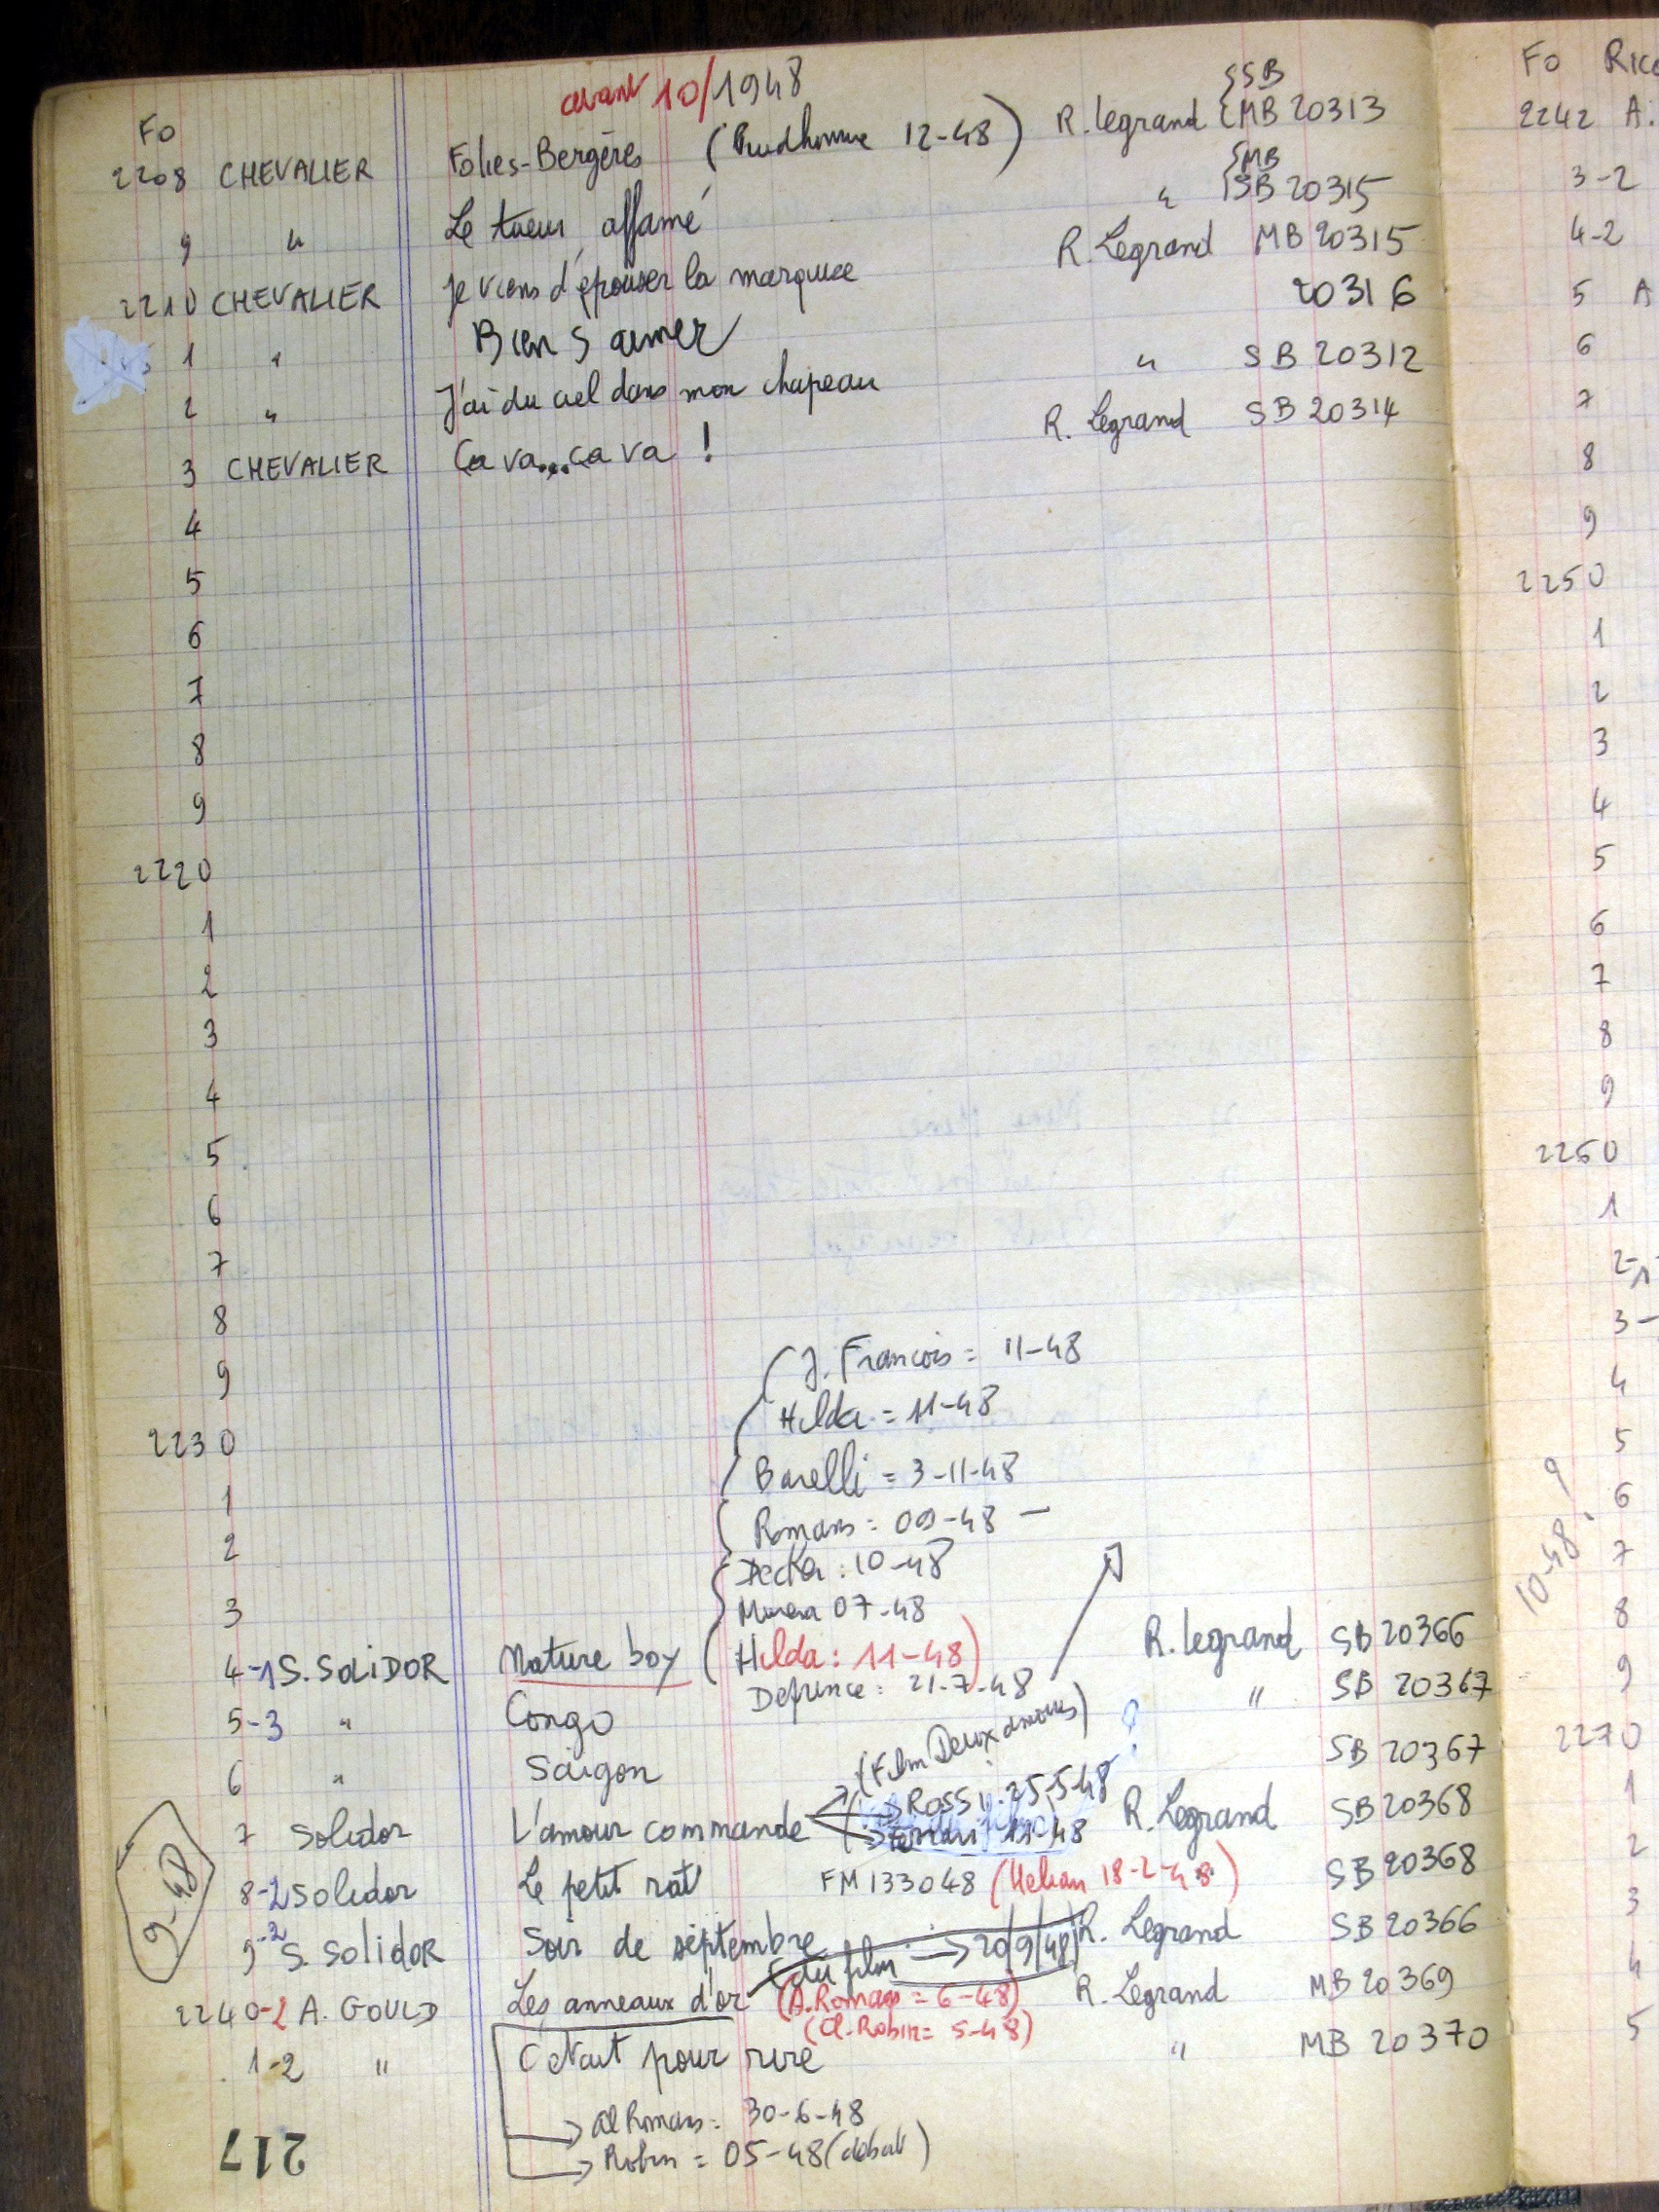 avant 10/1948
Fo
2208 CHEVALIER Folies-Bergères (Prudhomme 12-48) R. Legrand { SB MB 20313
9 " Le tueur affamé " { MB SB 20315
2210 CHEVALIER Je viens d'épouser la marquise R. Legrand MB 20315
1 " Bien s'aimer 20316
2 " J'ai du ciel dans mon chapeau " SB 20312
3 CHEVALIER Ca va...ca va ! R. Legrand SB 20314
4
5
6
7
8
9
2220
1
2
3
4
5
6
7
8
9
2230
1
2
3
( J. Francois = 11-48
Hilda = 11-48
Barelli = 3-11-48
Romans = 09-48 -
Decker : 10-48
07-48
4-1 S. SOLIDOR Nature boy ( Hilda : 11-48) R. Legrand SB 20366
Defrince : 21-7-48
5-3 " Congo " SB 20367
6 " Saigon SB 20367
(Film Deux amours) ?
Rossi : 25-5-48
7 Solidor L'amour commande R. Legrand SB 20368
Ferrari 11-48
8-2 Solidor Le petit rat FM 133048 (Helian 18-2-48) SB 20368
9-2 S. SOLIDOR Soir de septembre R. Legrand SB 20366
(du film → 20/9/48)
2240-2 A. GOULD Les anneaux d'or (A. Romans = 6-48) R. Legrand MB 20369
(Cl. Robin = 5-48)
1-2 " C'était pour rire " MB 20370
→ Al Romans = 30-6-48
→ Robin = 05-48 (début)
9-48
217
Fo
2242 A.
3-2
4-2
5 A
6
7
8
9
2250
1
2
3
4
5
6
7
8
9
2260
1
2-1
3-
4
5
6
7
8
9
10-48 ?
2270
1
2
3
4
5